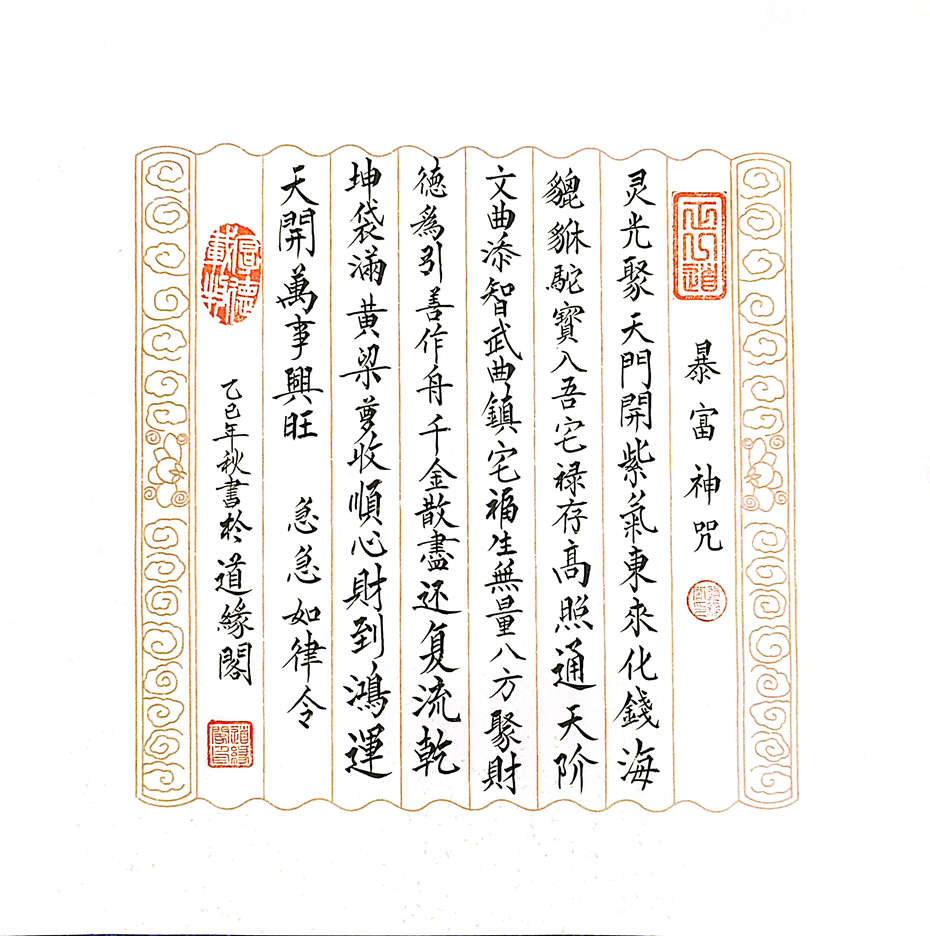 暴富神咒
灵光聚天門開紫氣東來化錢海
貔貅駝寶入吾宅禄存高照通天阶
文曲添智武曲鎮宅福生無量八方聚財
德為引善作舟千金散盡还复流乾
坤袋滿黄梁夢收順心財到鴻運
天開萬事興旺 急急如律令
厚德載物
乙巳年秋書於道緣閣
道緣閣印